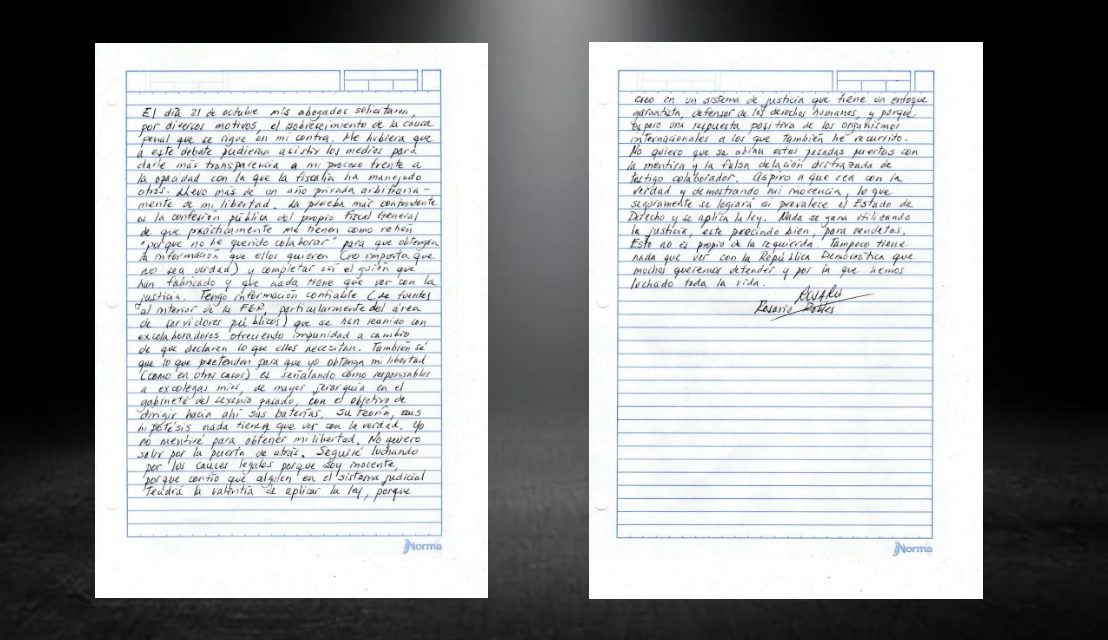 El día 21 de octubre mis abogados solicitaron,
por diversos motivos, el sobreseimiento de la causa
penal que se sigue en mi contra. Me hubiera que
a este debate pudieran asistir los medios para
darle más transparencia a mi proceso frente a
la opacidad con la que la fiscalía ha manejado
otros. Llevo más de un año privada arbitraria-
mente de mi libertad. La prueba más contundente
es la confesión pública del propio Fiscal General
de que prácticamente me tienen como rehén
"porque no he querido colaborar" para que obtengan
la información que ellos quieren (no importa que
no sea verdad) y completar así el guión que
han fabricado y que nada tiene que ver con la
justicia. Tengo información confiable (de fuentes
al interior de la FGR, particularmente del área
de servidores públicos) que se han reunido con
excolaboradores ofreciendo impunidad a cambio
de que declaren lo que ellos necesitan. También sé
que lo que pretenden para que yo obtenga mi libertad
(como en otros casos) es señalando como responsables
a excolegas míos, de mayor jerarquía en el
gabinete del sexenio pasado, con el objetivo de
dirigir hacia ahí sus baterías. Su teoría, sus
hipótesis nada tienen que ver con la verdad. Yo
no mentiré para obtener mi libertad. No quiero
salir por la puerta de atrás. Seguiré luchando
por los cauces legales porque soy inocente,
porque confío que alguien en el sistema judicial
tendrá la valentía de aplicar la ley, porque
Norma
creo en un sistema de justicia que tiene un enfoque
garantista, defensor de los derechos humanos, y porque
espero una respuesta positiva de los organismos
internacionales a los que también he recurrido.
No quiero que se abran estas pesadas puertas con
la mentira y la falsa delación disfrazada de
testigo colaborador. Aspiro a que sea con la
verdad y demostrando mi inocencia, lo que
seguramente se logrará si prevalece el Estado de
Derecho y se aplica la ley. Nada se gana utilizando
la justicia, este preciado bien, para vendetas.
Esto no es propio de la izquierda. Tampoco tiene
nada que ver con la República Democrática que
muchos queremos defender y por la que hemos
luchado toda la vida.
ROSARIO
Rosario Robles
Norma